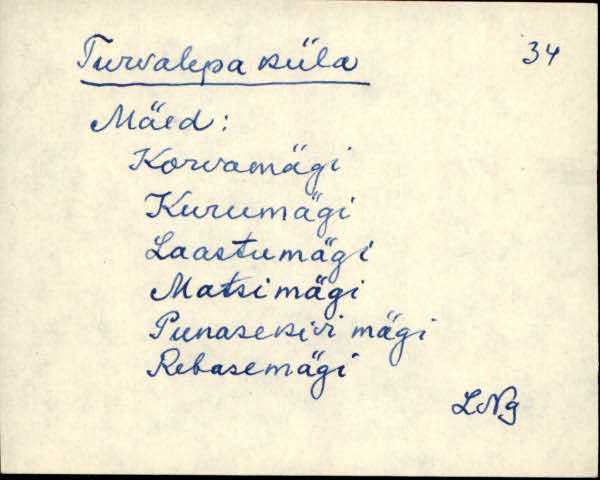 Turvalepa küla 34
Mäed:
Korvamägi
Kurumägi
Laastumägi
Matsimägi
Punasekivi mägi
Rebasemägi
LNg